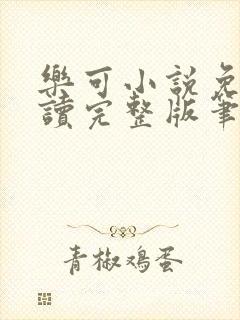 樂可小説免
讀完整版筆
青椒鸡蛋